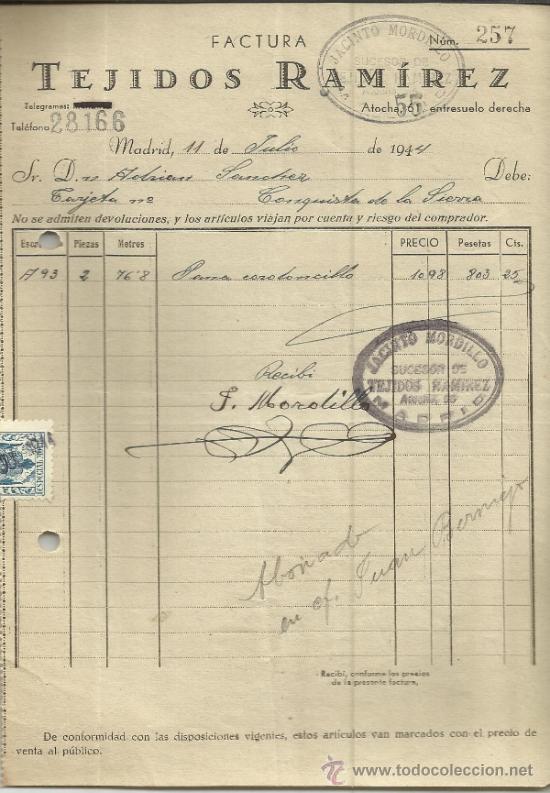 FACTURA
Núm. 257
JACINTO MORDILLO
SUCESOR DE
TEJIDOS RAMÍREZ
Telegramas:
Atocha, 61, entresuelo derecha
55
Teléfono 28166
Madrid, 11 de Julio de 1944
Sr. D. Adrian Sanchez Debe:
Tarjeta nº Conquista de la Sierra
No se admiten devoluciones, y los artículos viajan por cuenta y riesgo del comprador.
Piezas Metros PRECIO Pesetas Cts.
A93 2 76'8 Pana 1098 803 25
JACINTO MORDILLO
SUCESOR DE
TEJIDOS RAMIREZ
MADRID
Recibí
J. Mordillo
ESPECIAL
Abonado
en cf. Juan Bermejo
Recibí, conforme los precios
de la presente factura,
De conformidad con las disposiciones vigentes, estos artículos van marcados con el precio de
venta al público.
www.todocoleccion.net